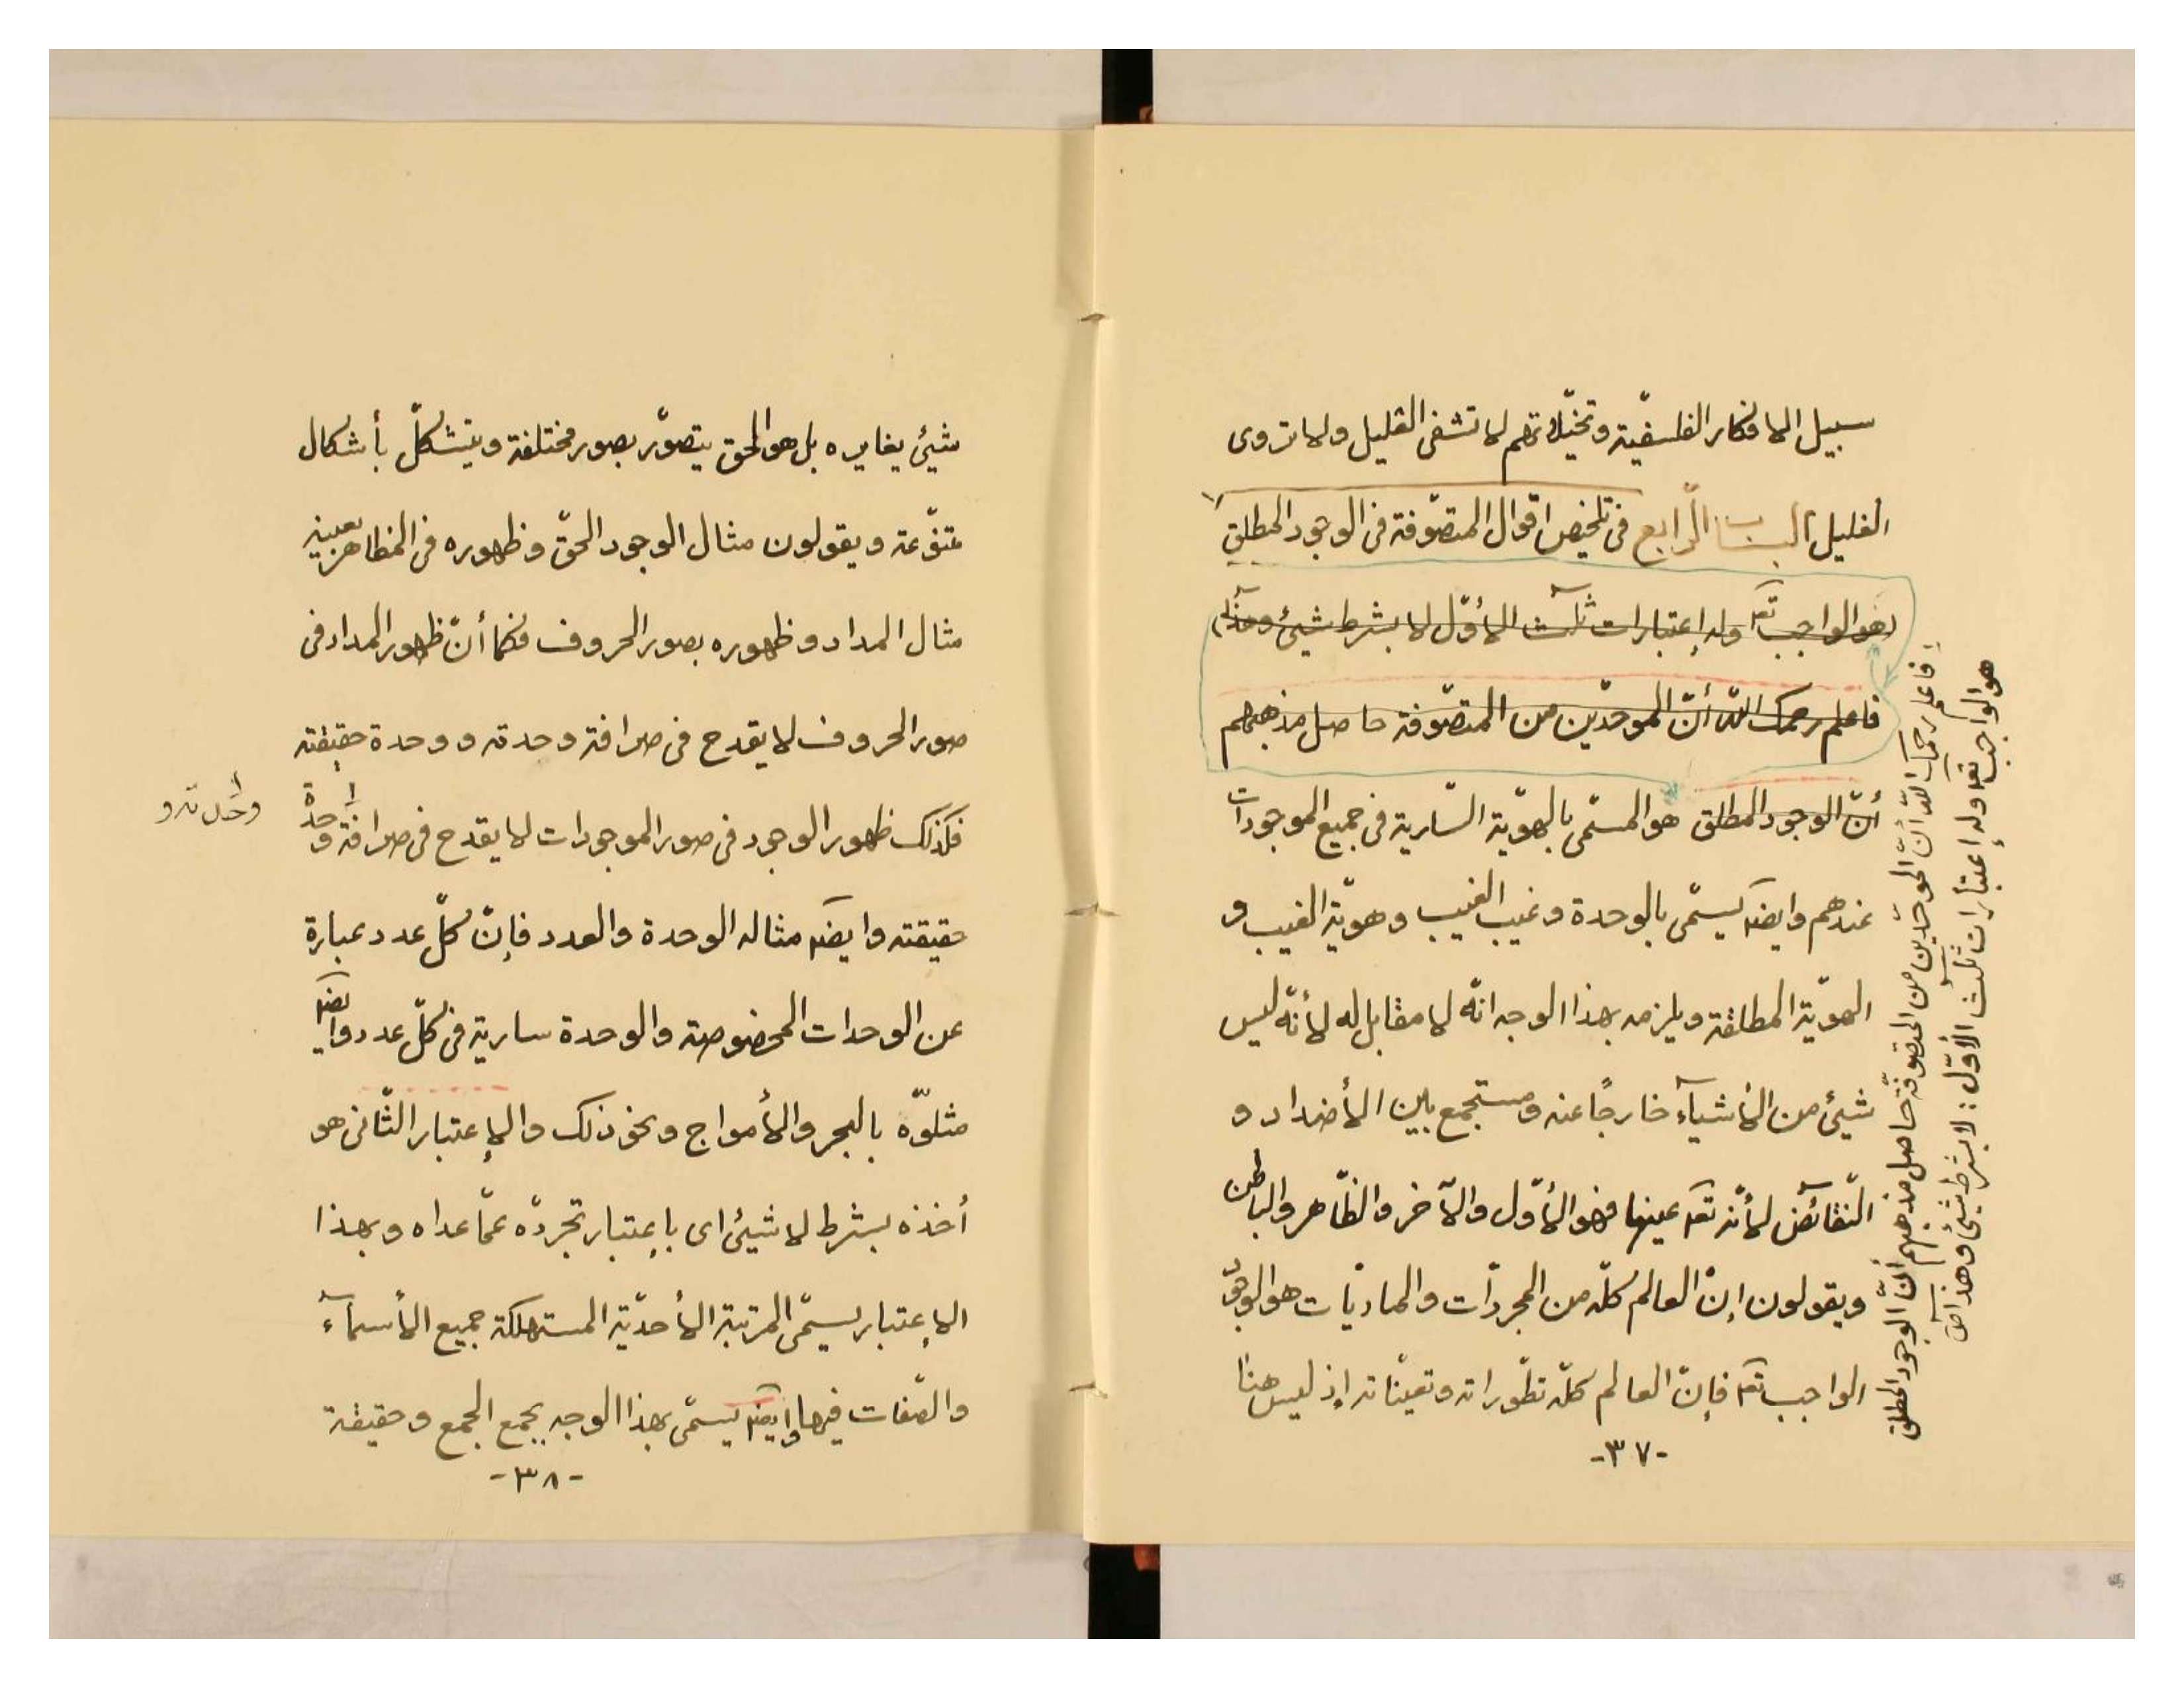 سبيل الافكار الفلسفيّة وتخيّلاتهم لا تشفى العليل ولا تروى
الغليل الباب الرّابع فى تلخيص اقوال المتصوّفة فى الوجود المطلق
هو الواجب تعـ وله إعتبارات ثلٰث الأوّل لا بشرط شيئ وهذا
فاعلم رحمك اللّه أنّ الموحّدين من المتصوّفة حاصل مذهبهم
أنّ الوجود المطلق هو المسمّى بالهويّة السّارية فى جميع الموجودات
عندهم وايضـ يسمّى بالوحدة وغيب الغيب وهويّة الغيب و
الهويّة المطلقة ويلزمه بهذا الوجه انّه لا مقابل له لأنّه ليس
شيئ من الأشيآء خارجًا عنه ومستجمع بين الأضداد و
النّقآئض لأنّه تعـ عينها فهو الأوّل والآخر والظّاهر والباطن
ويقولون إنّ العالم كلّه من المجرّدات والماديّات هو الوجود
الواجب تعـ فإنّ العالم كلّه تطوّراته وتعيّناته إذ ليس هنا
-٣٧-
فاعلم رحمك اللّه أنّ الموحّدين من المتصوفّة حاصل مذهبهم أنّ الوجود المطلق
هو الواجب تعـ وله إعتبارات ثلٰث الأوّل : لا بشرط شيئ وهذا
شيئ يغايره بل هو الحق يتصوّر بصور مختلفة ويتشكّل بأشكال
متنوّعة ويقولون مثال الوجود الحقّ وظهوره فى المظاهر بعينه
مثال المداد وظهوره بصور الحروف فكما أنّ ظهور المداد فى
صور الحروف لا يقدح فى صرافة وحدته ووحدة حقيقته
فكذلك ظهور الوجود فى صور الموجودات لا يقدح فى صرافة وحدة
وحدته و
حقيقته وايضـ مثاله الوحدة والعدد فإنّ كلّ عدد عبارة
عن الوحدات المخصوصة والوحدة سارية فى كلّ عدد وايضـ
مثلوّه بالبحر والأمواج ونحو ذلك والإعتبار الثّانى هو
أخذه بشرط لا شيئ اى بإعتبار تجردّه عمّا عداه وبهذا
الإعتبار يسمّى المرتبة الأحديّة المستهلكة جميع الأسمآء
والصّفات فيها وايضـ يسمّى بهذا الوجه بجمع الجمع وحقيقة
-٣٨-